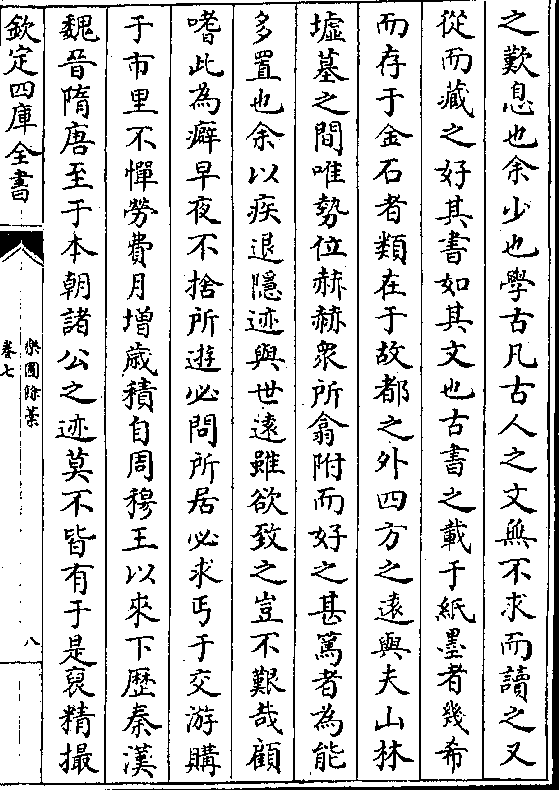 之歎息也余少也學古凡古人之文無不求而讀之又
從而藏之好其書如其文也古書之載于紙墨者幾希
而存于金石者類在于故都之外四方之遠與夫山林
墟墓之間唯勢位赫赫衆所翕附而好之甚篤者為能
多置也余以疾退隱迹與世遠雖欲致之豈不艱哉顧
嗜此為癖早夜不捨所遊必問所居必求丐于交游購
于市里不憚勞費月增歲積自周穆王以來下歷秦漢
魏晉隋唐至于本朝諸公之迹莫不皆有于是裒精撮
欽定四庫全書
樂圃餘藁
卷七
八